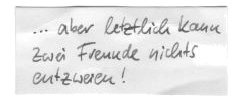 ... aber letztlich kann
zwei Freunde nichts
entzweien!